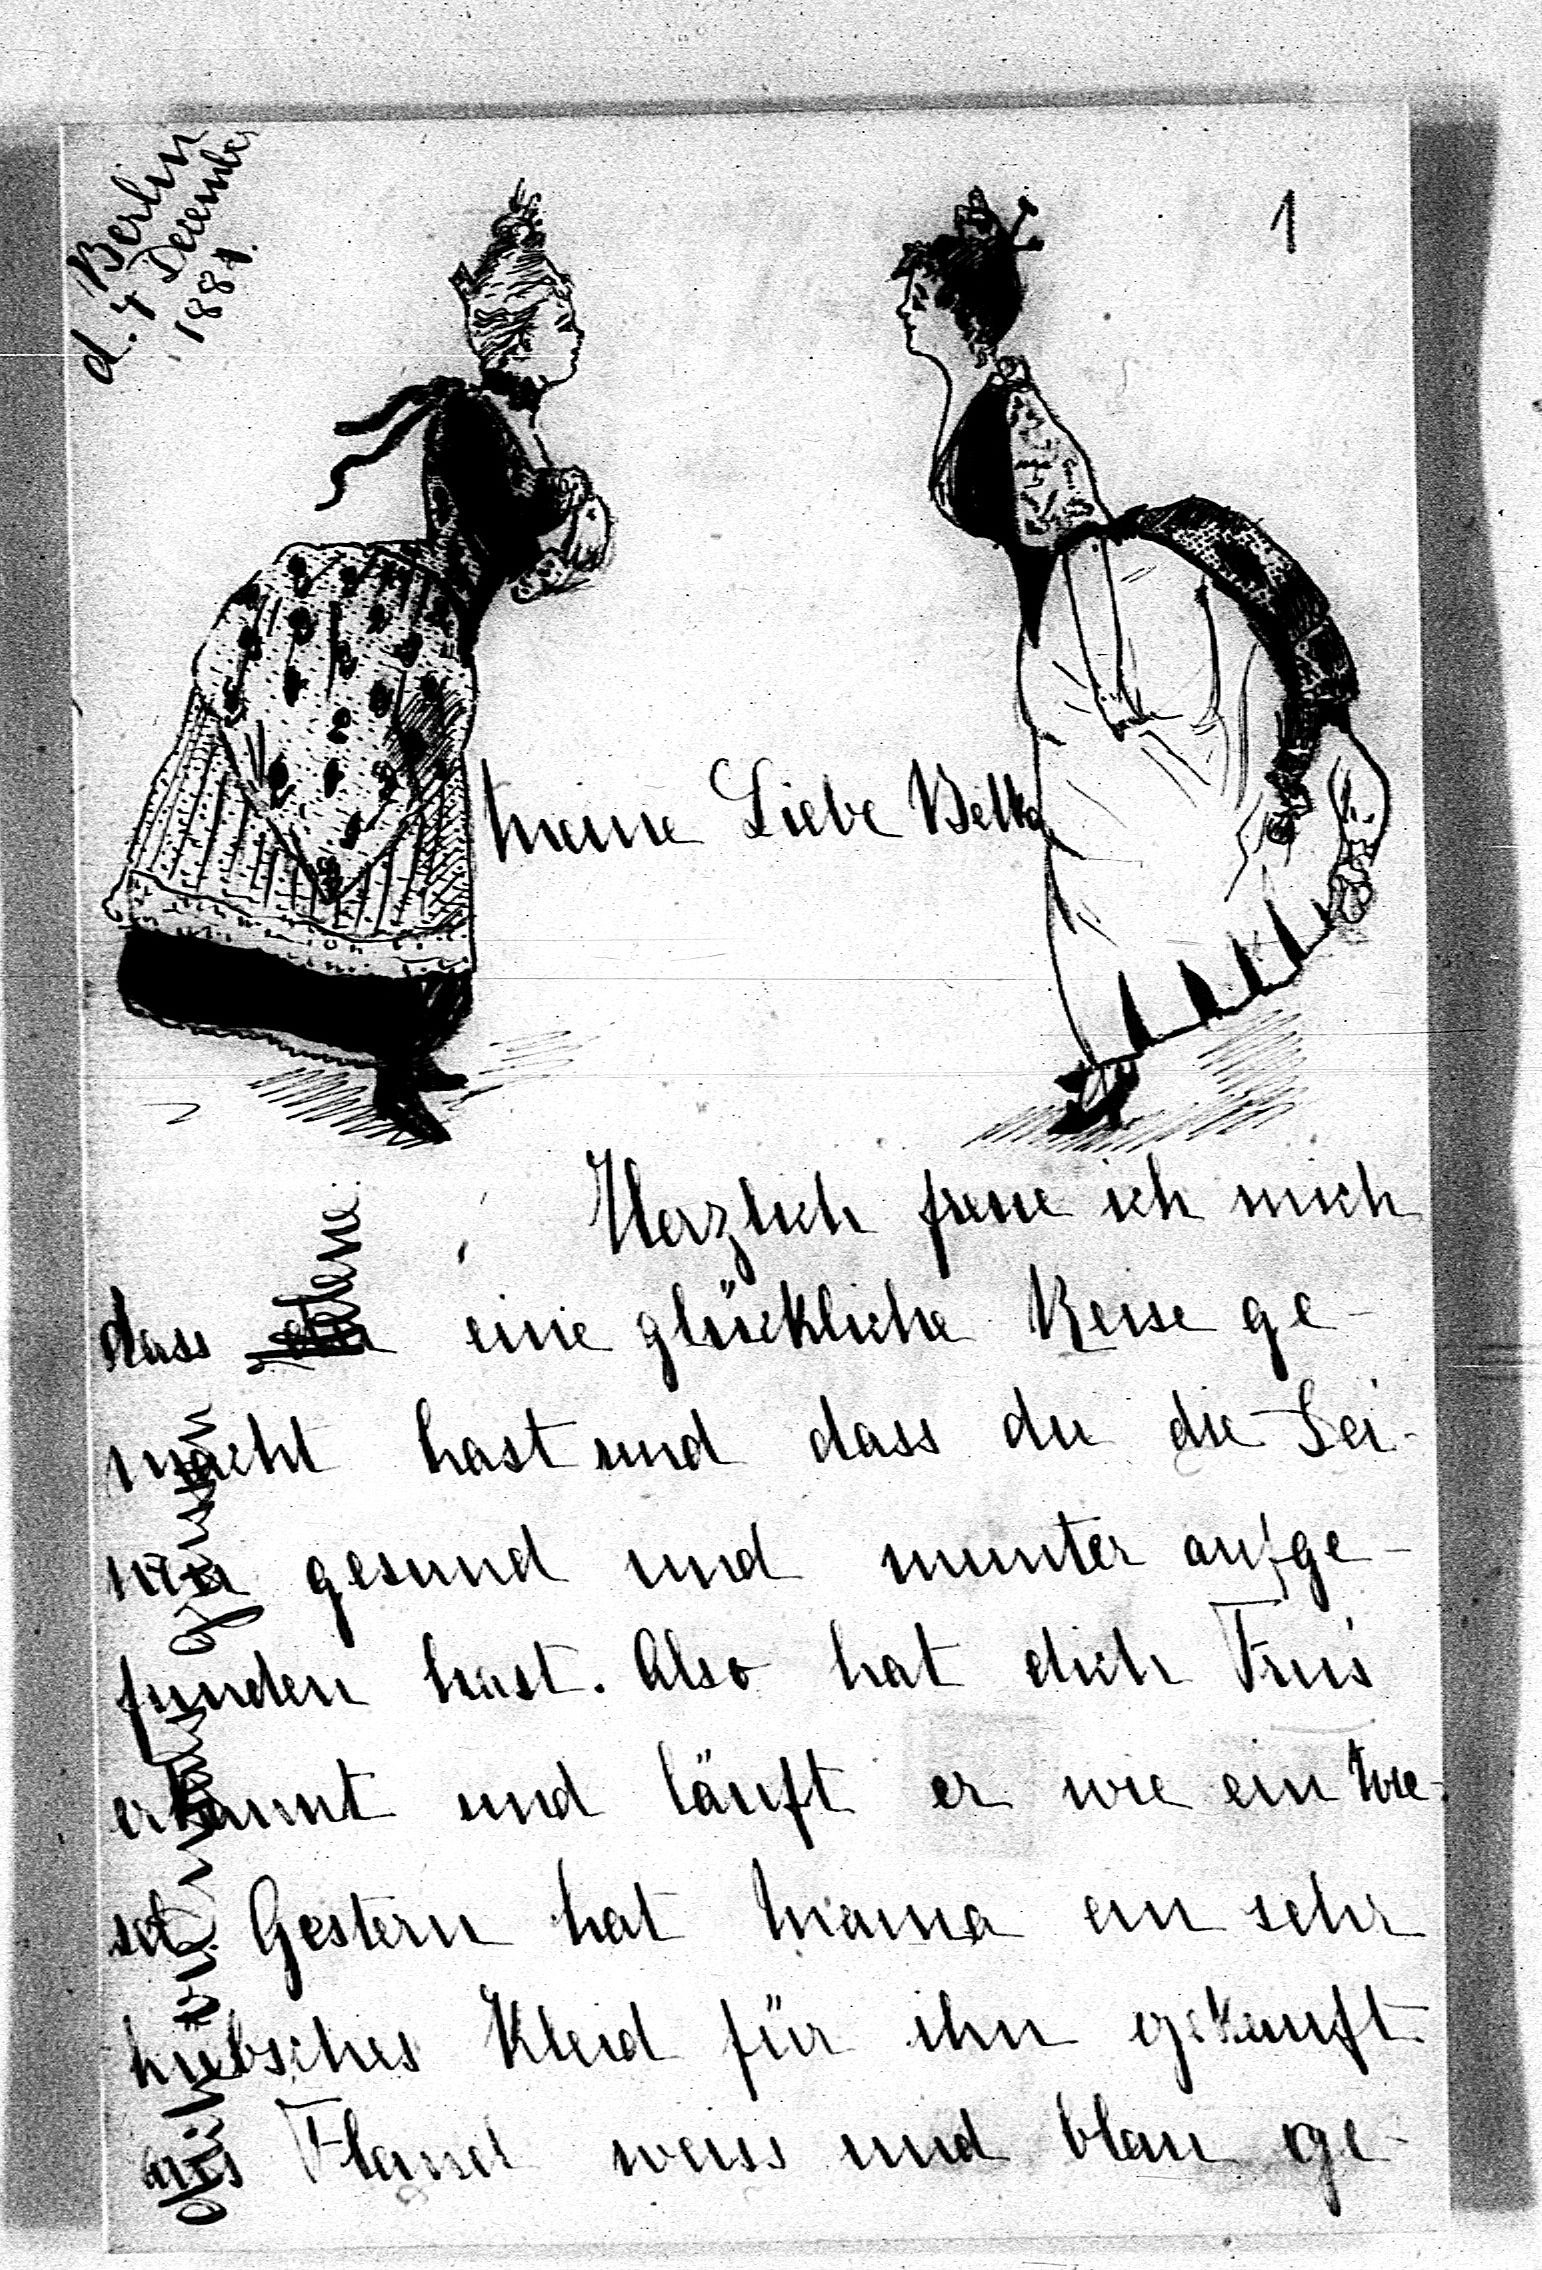 Berlin
d. 4 December
1881.
1
Meine Liebe Belka
Herzlich freue ich mich
dass eine glückliche Reise ge-
macht hast und dass du die Dei-
nen gesund und munter aufge-
funden hast. Also hat dich Frus
erkannt und läuft er wie ein Wie-
sel Gestern hat Mama ein sehr
hübsches Kleid für ihn gekauft
aus Flanel weiss und blau ge-
Helene